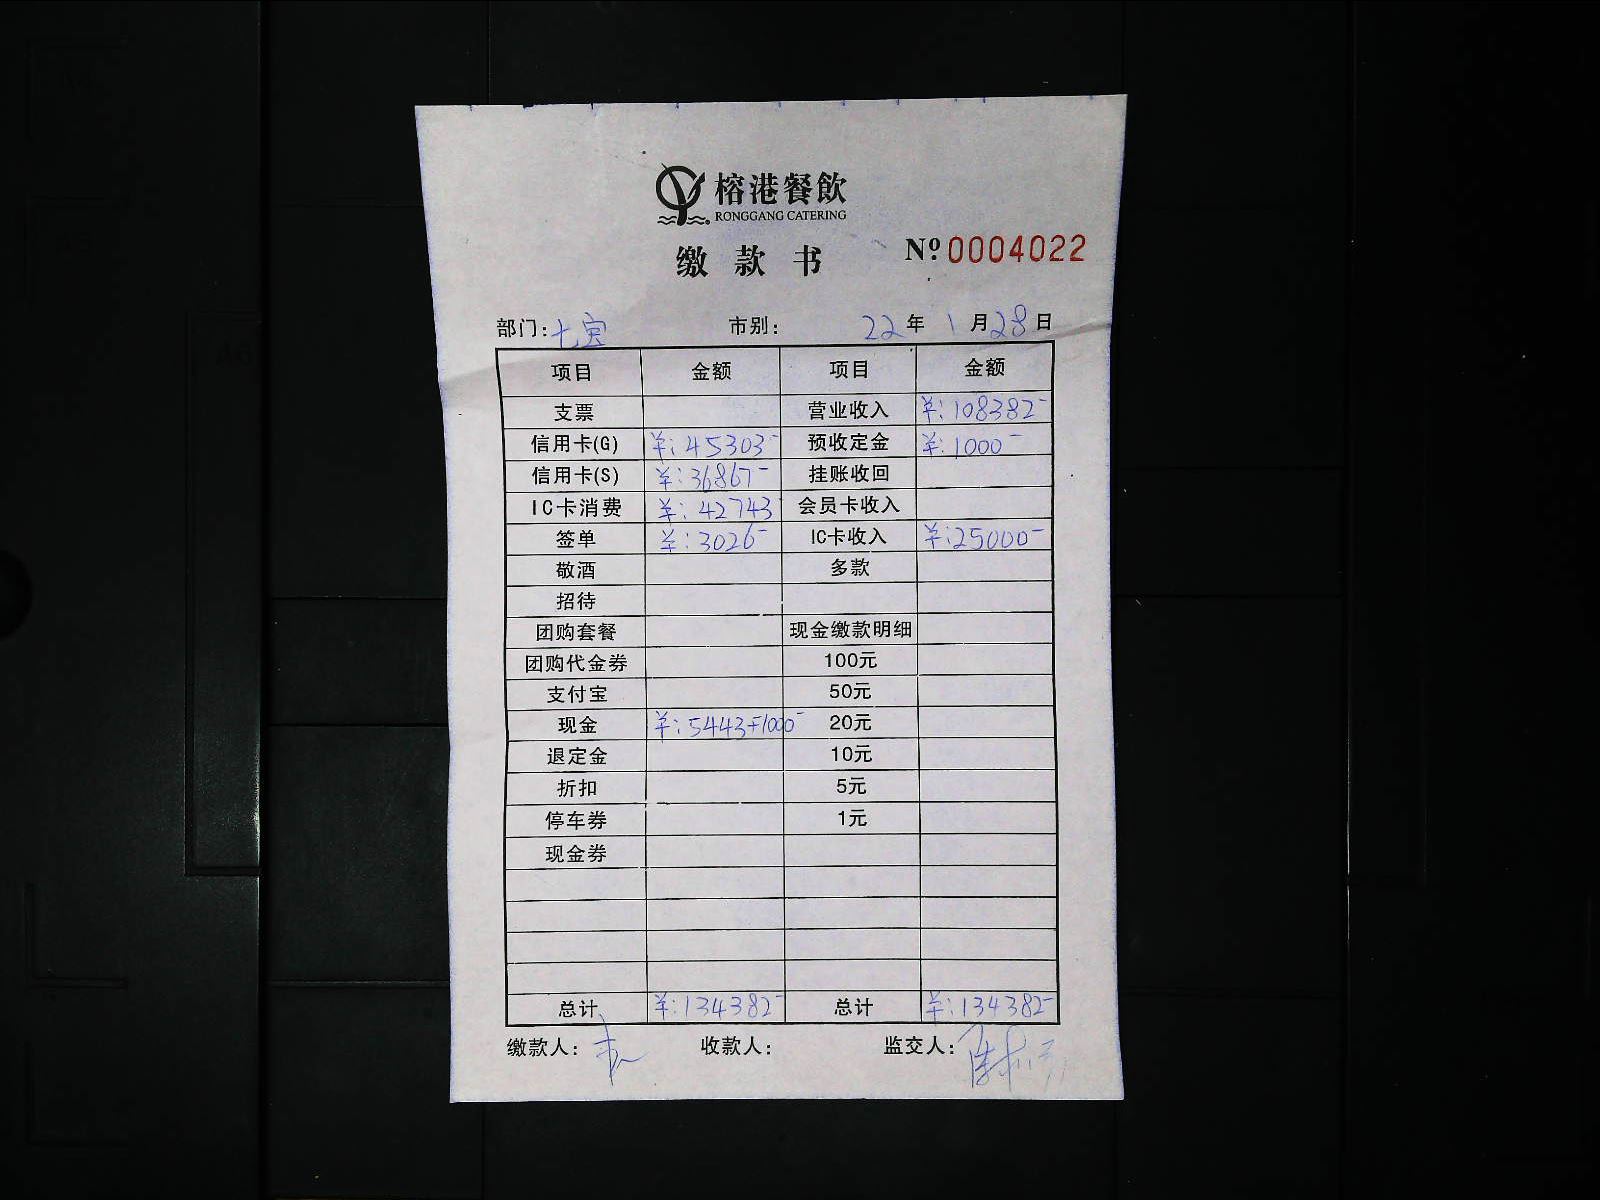 榕港餐飲
RONGGANG CATERING
缴款书
Nº 0004022
部门:七宝 市别: 22年1月28日
项目 金额 项目 金额
支票 营业收入 ¥:108382-
信用卡(G) ¥:45303- 预收定金 ¥:1000-
信用卡(S) ¥:36867- 挂账收回
IC卡消费 ¥:42743 会员卡收入
签单 ¥:3026- IC卡收入 ¥:25000-
敬酒 多款
招待
团购套餐 现金缴款明细
团购代金券 100元
支付宝 50元
现金 ¥:5443+1000- 20元
退定金 10元
折扣 5元
停车券 1元
现金券
总计 ¥:134382- 总计 ¥:134382-
缴款人: 收款人: 监交人: